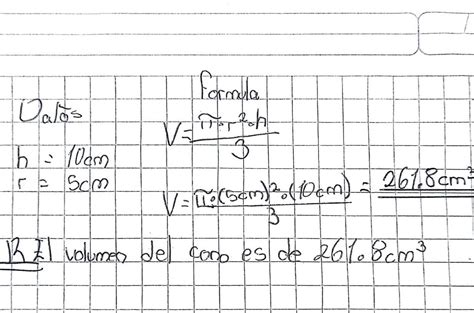 Formula
Datos
V = π·r²·h / 3
h = 10cm
r = 5cm
V = π·(5cm)²·(10cm) / 3 = 261.8cm³
R El volumen del cono es de 261.8cm³